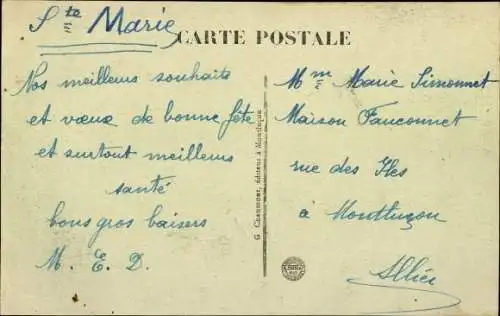 Ste Marie
CARTE POSTALE
Nos meilleurs souhaits
et vœux de bonne fête
et surtout meilleurs
santé
bons gros baisers
M. E. D.
G. Chaumont, éditeur à Montluçon
Mme Marie Simonnet
Maison Fauconnet
rue des Iles
à Montluçon
Allier